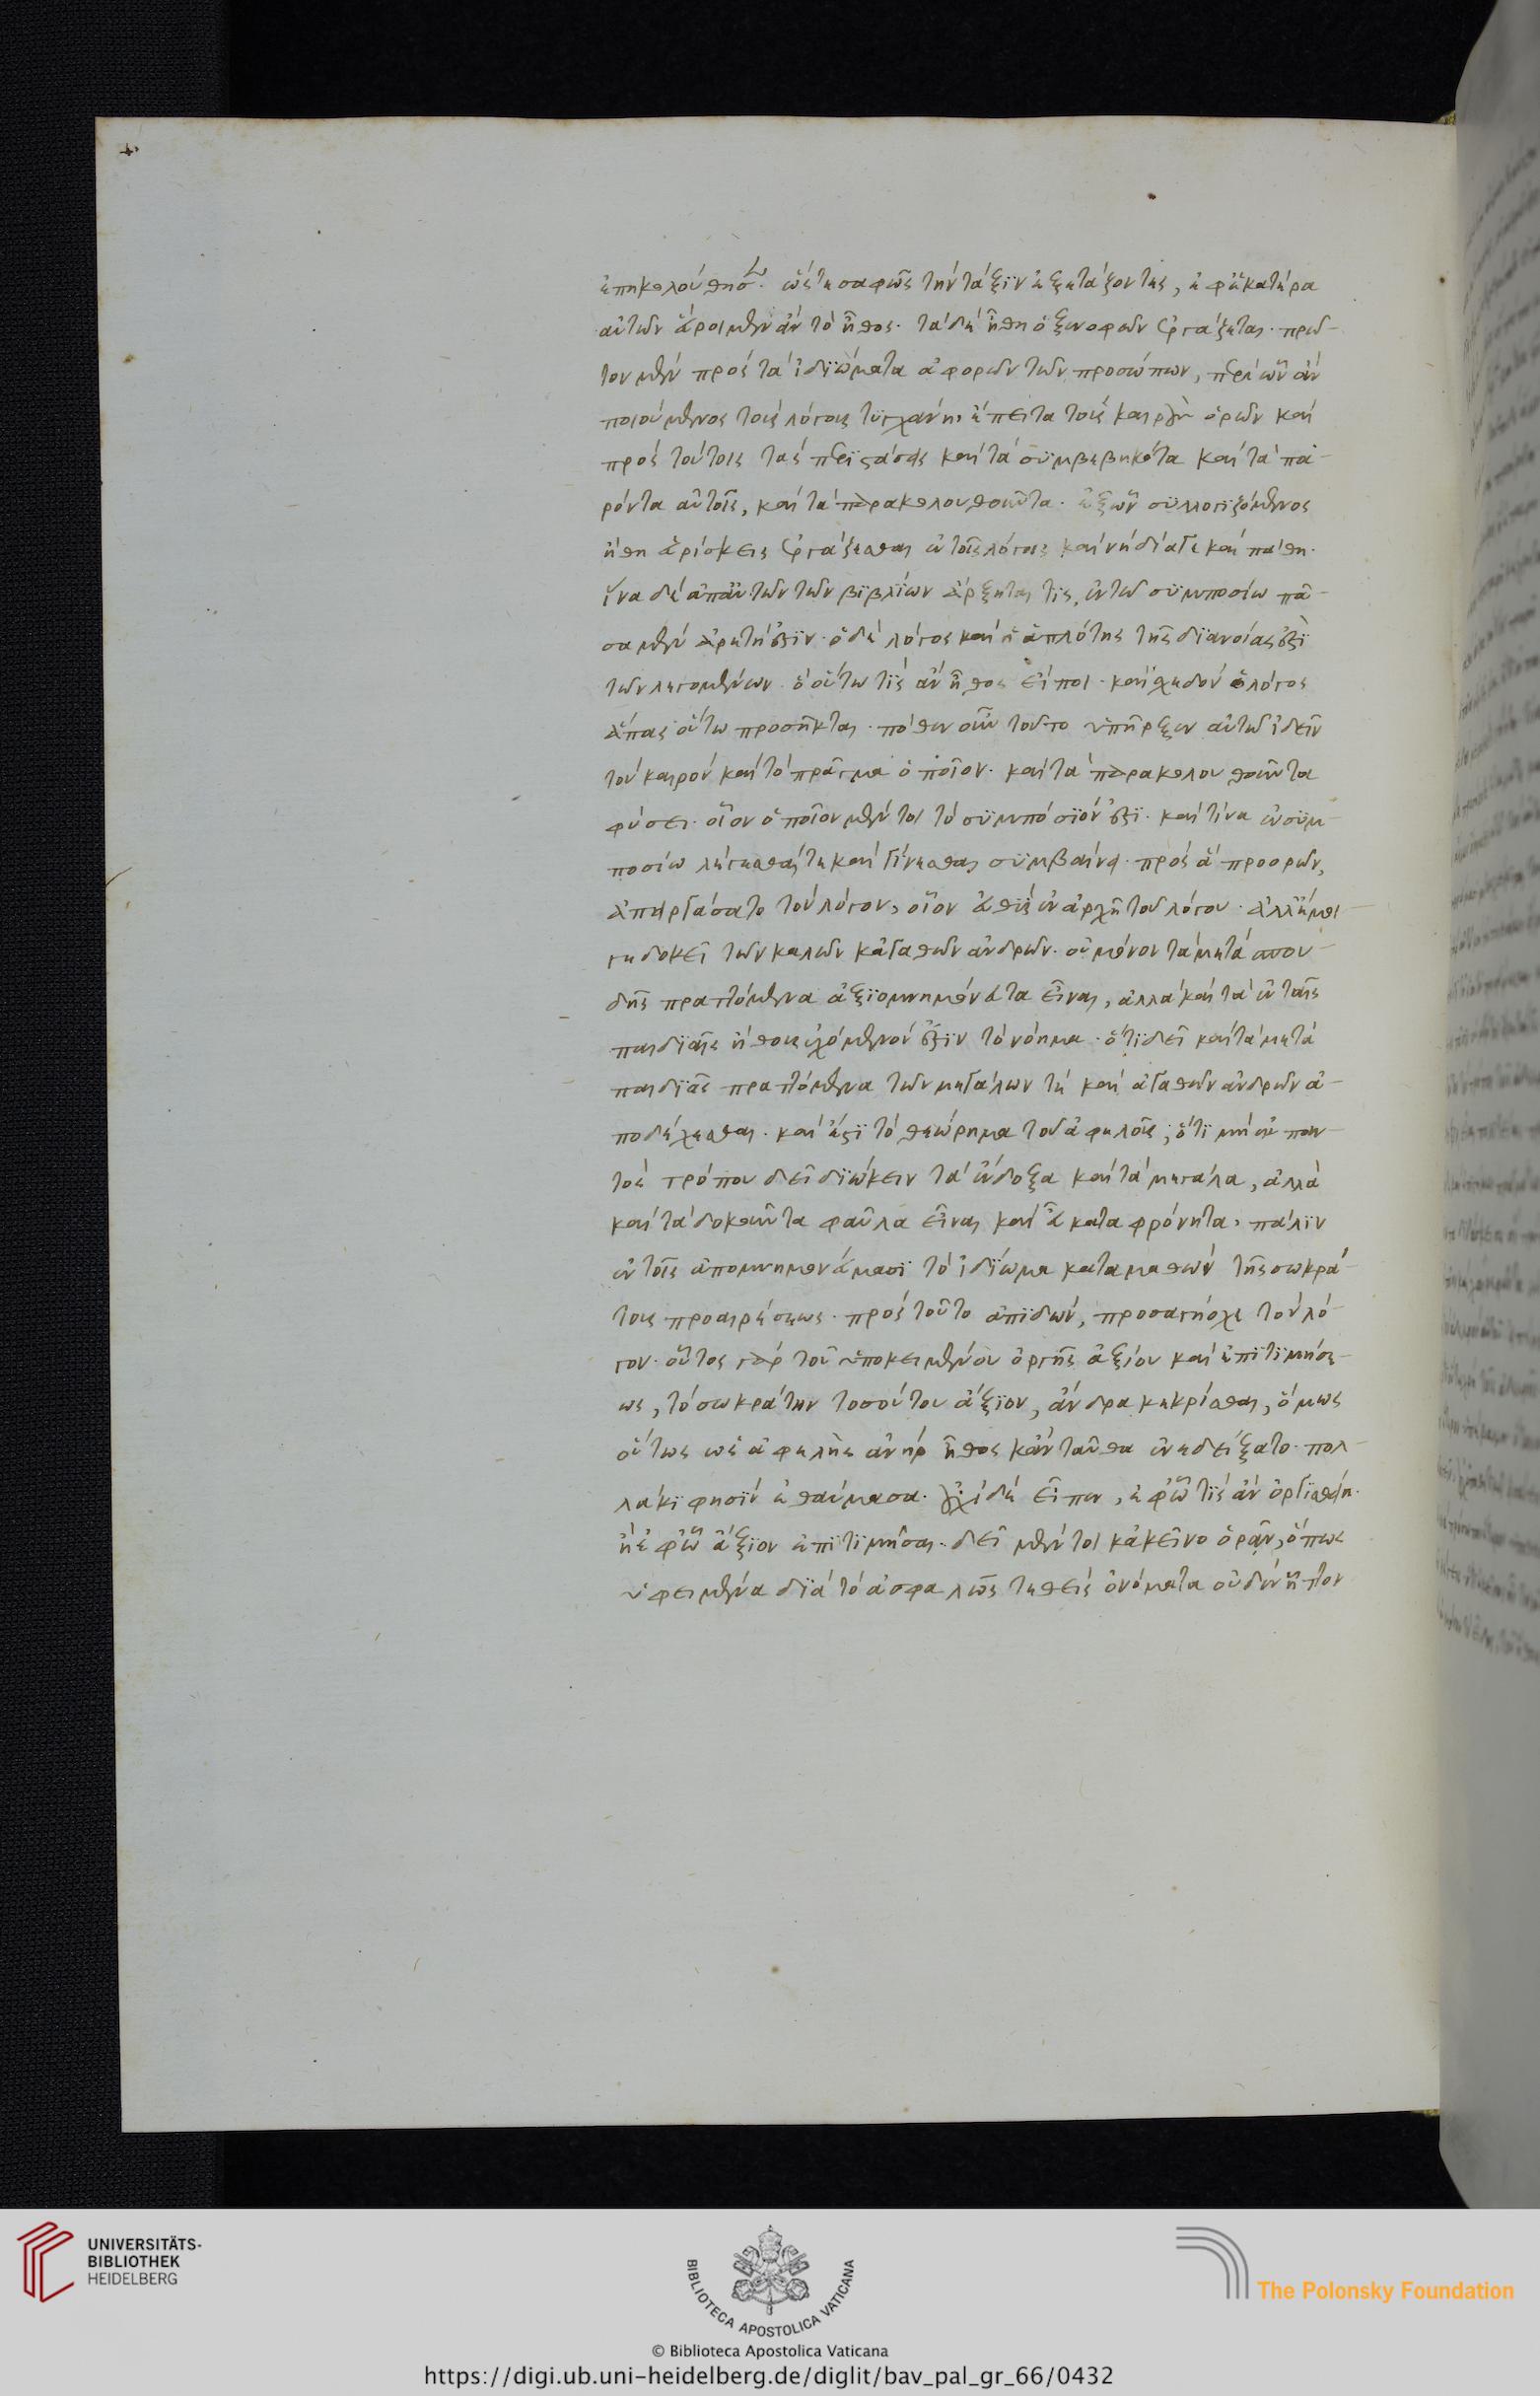 ἐπηκολούθησ. ὥστε σαφῶς τὴν τάξιν ἐξετάζοντες, ἐφ' ἑκατέρα
αὐτῶν εὕροιμεν ἂν τὸ ἦθος. τὰ δὲ ἤθη ὁ ξενοφῶν ἐργάζεται. πρῶ-
τον μὲν πρὸς τὰ ἰδιώματα ἀφορῶν τῶν προσώπων, περὶ ὧν ἂν
ποιούμενος τοὺς λόγους τυγχάνη, ἔπειτα τοὺς καιροὺς ὁρῶν καὶ
πρὸς τούτοις τὰς περιστάσεις καὶ τὰ συμβεβηκότα καὶ τὰ πα-
ρόντα αὐτοῖς, καὶ τὰ παρακολουθοῦντα. ἐξ ὧν συλλογιζόμενος
ἤθη εὑρίσκεις ἐργάζεσθαι ἐν τοῖς λόγοις καὶ νὴ δία γε καὶ πάθη.
ἵνα δὲ ἀπ' αὐτῶν τῶν βιβλίων ἄρξηται τις, ἐν τῶ συμποσίω πᾶ-
σα μὲν ἀρετή ἐστιν. ὁ δὲ λόγος καὶ ἡ ἁπλότης τῆς διανοίας ἐστὶ
τῶν λεγομένων. ὃ οὕτω τις ἂν ἦθος εἴποι. καὶ σχεδὸν ὁ λόγος
ἅπας οὕτω προσῆκται. πόθεν οὖν τοῦτο ὑπῆρξεν αὐτῶ ἰδεῖν
τὸν καιρὸν καὶ τὸ πρᾶγμα ὁποῖον. καὶ τὰ παρακολουθοῦντα
φύσει. οἷον ὁποῖον μέν τοι τὸ συμπόσιόν ἐστι. καὶ τίνα ἐν συμ-
ποσίω λέγεσθαί τε καὶ γίνεσθαι συμβαίνει. πρὸς ἃ προορῶν,
ἀπειργάσατο τὸν λόγον, οἷον εὐθὺς ἐν ἀρχῆ τοῦ λόγου. ἀλλ' ἔμοι-
γε δοκεῖ τῶν καλῶν κἀγαθῶν ἀνδρῶν. οὐ μόνον τὰ μετὰ σπου-
δῆς πραττόμενα ἀξιομνημόνευτα εἶναι, ἀλλὰ καὶ τὰ ἐν ταῖς
παιδιαῖς ἤθους ἐχόμενόν ἐστιν τὸ νόημα. ὅτι δεῖ καὶ τὰ μετὰ
παιδιᾶς πραττόμενα τῶν μεγάλων τὲ καὶ ἀγαθῶν ἀνδρῶν ἀ-
ποδέχεσθαι. καὶ ἔστι τὸ θεώρημα τοῦ ἀφελοῦς, ὅτι μὴ ἐκ παν-
τὸς τρόπου δεῖ διώκειν τὰ ἔνδοξα καὶ τὰ μεγάλα, ἀλλὰ
καὶ τὰ δοκοῦντα φαῦλα εἶναι καὶ εὐκαταφρόνητα, πάλιν
ἐν τοῖς ἀπομνημονεύμασι τὸ ἰδίωμα καταμαθὼν τῆς σωκρά-
τους προαιρέσεως. πρὸς τοῦτο ἀπιδὼν, προσαγήοχε τὸν λό-
γον. οὗτος γὰρ τοῦ ὑποκειμένου ὀργῆς ἀξίου καὶ ἐπιτιμήσε-
ως, τὸ σωκράτην τοσούτου ἄξιον, ἄνδρα κεκρίσθαι, ὅμως
οὕτως ὡς ἀφελὴς ἀνὴρ ἦθος κἀνταῦθα ἐνεδείξατο. πολ-
λάκι φησὶν ἐθαύμασα. οὐχὶ δὲ εἶπεν, ἐφ' ὧ τὶς ἂν ὀργισθείη.
ἢ ἐφ' ὧ ἄξιον ἐπιτιμῆσαι. δεῖ μέν τοι κἀκεῖνο ὁρᾶν, ὅπως
ὑφειμένα διὰ τὸ ἀσφαλῶς τεθεὶς ὀνόματα οὐδὲν ἧττον
UNIVERSITÄTS-
BIBLIOTHEK
HEIDELBERG
BIBLIOTECA APOSTOLICA VATICANA
The Polonsky Foundation
© Biblioteca Apostolica Vaticana
https://digi.ub.uni-heidelberg.de/diglit/bav_pal_gr_66/0432